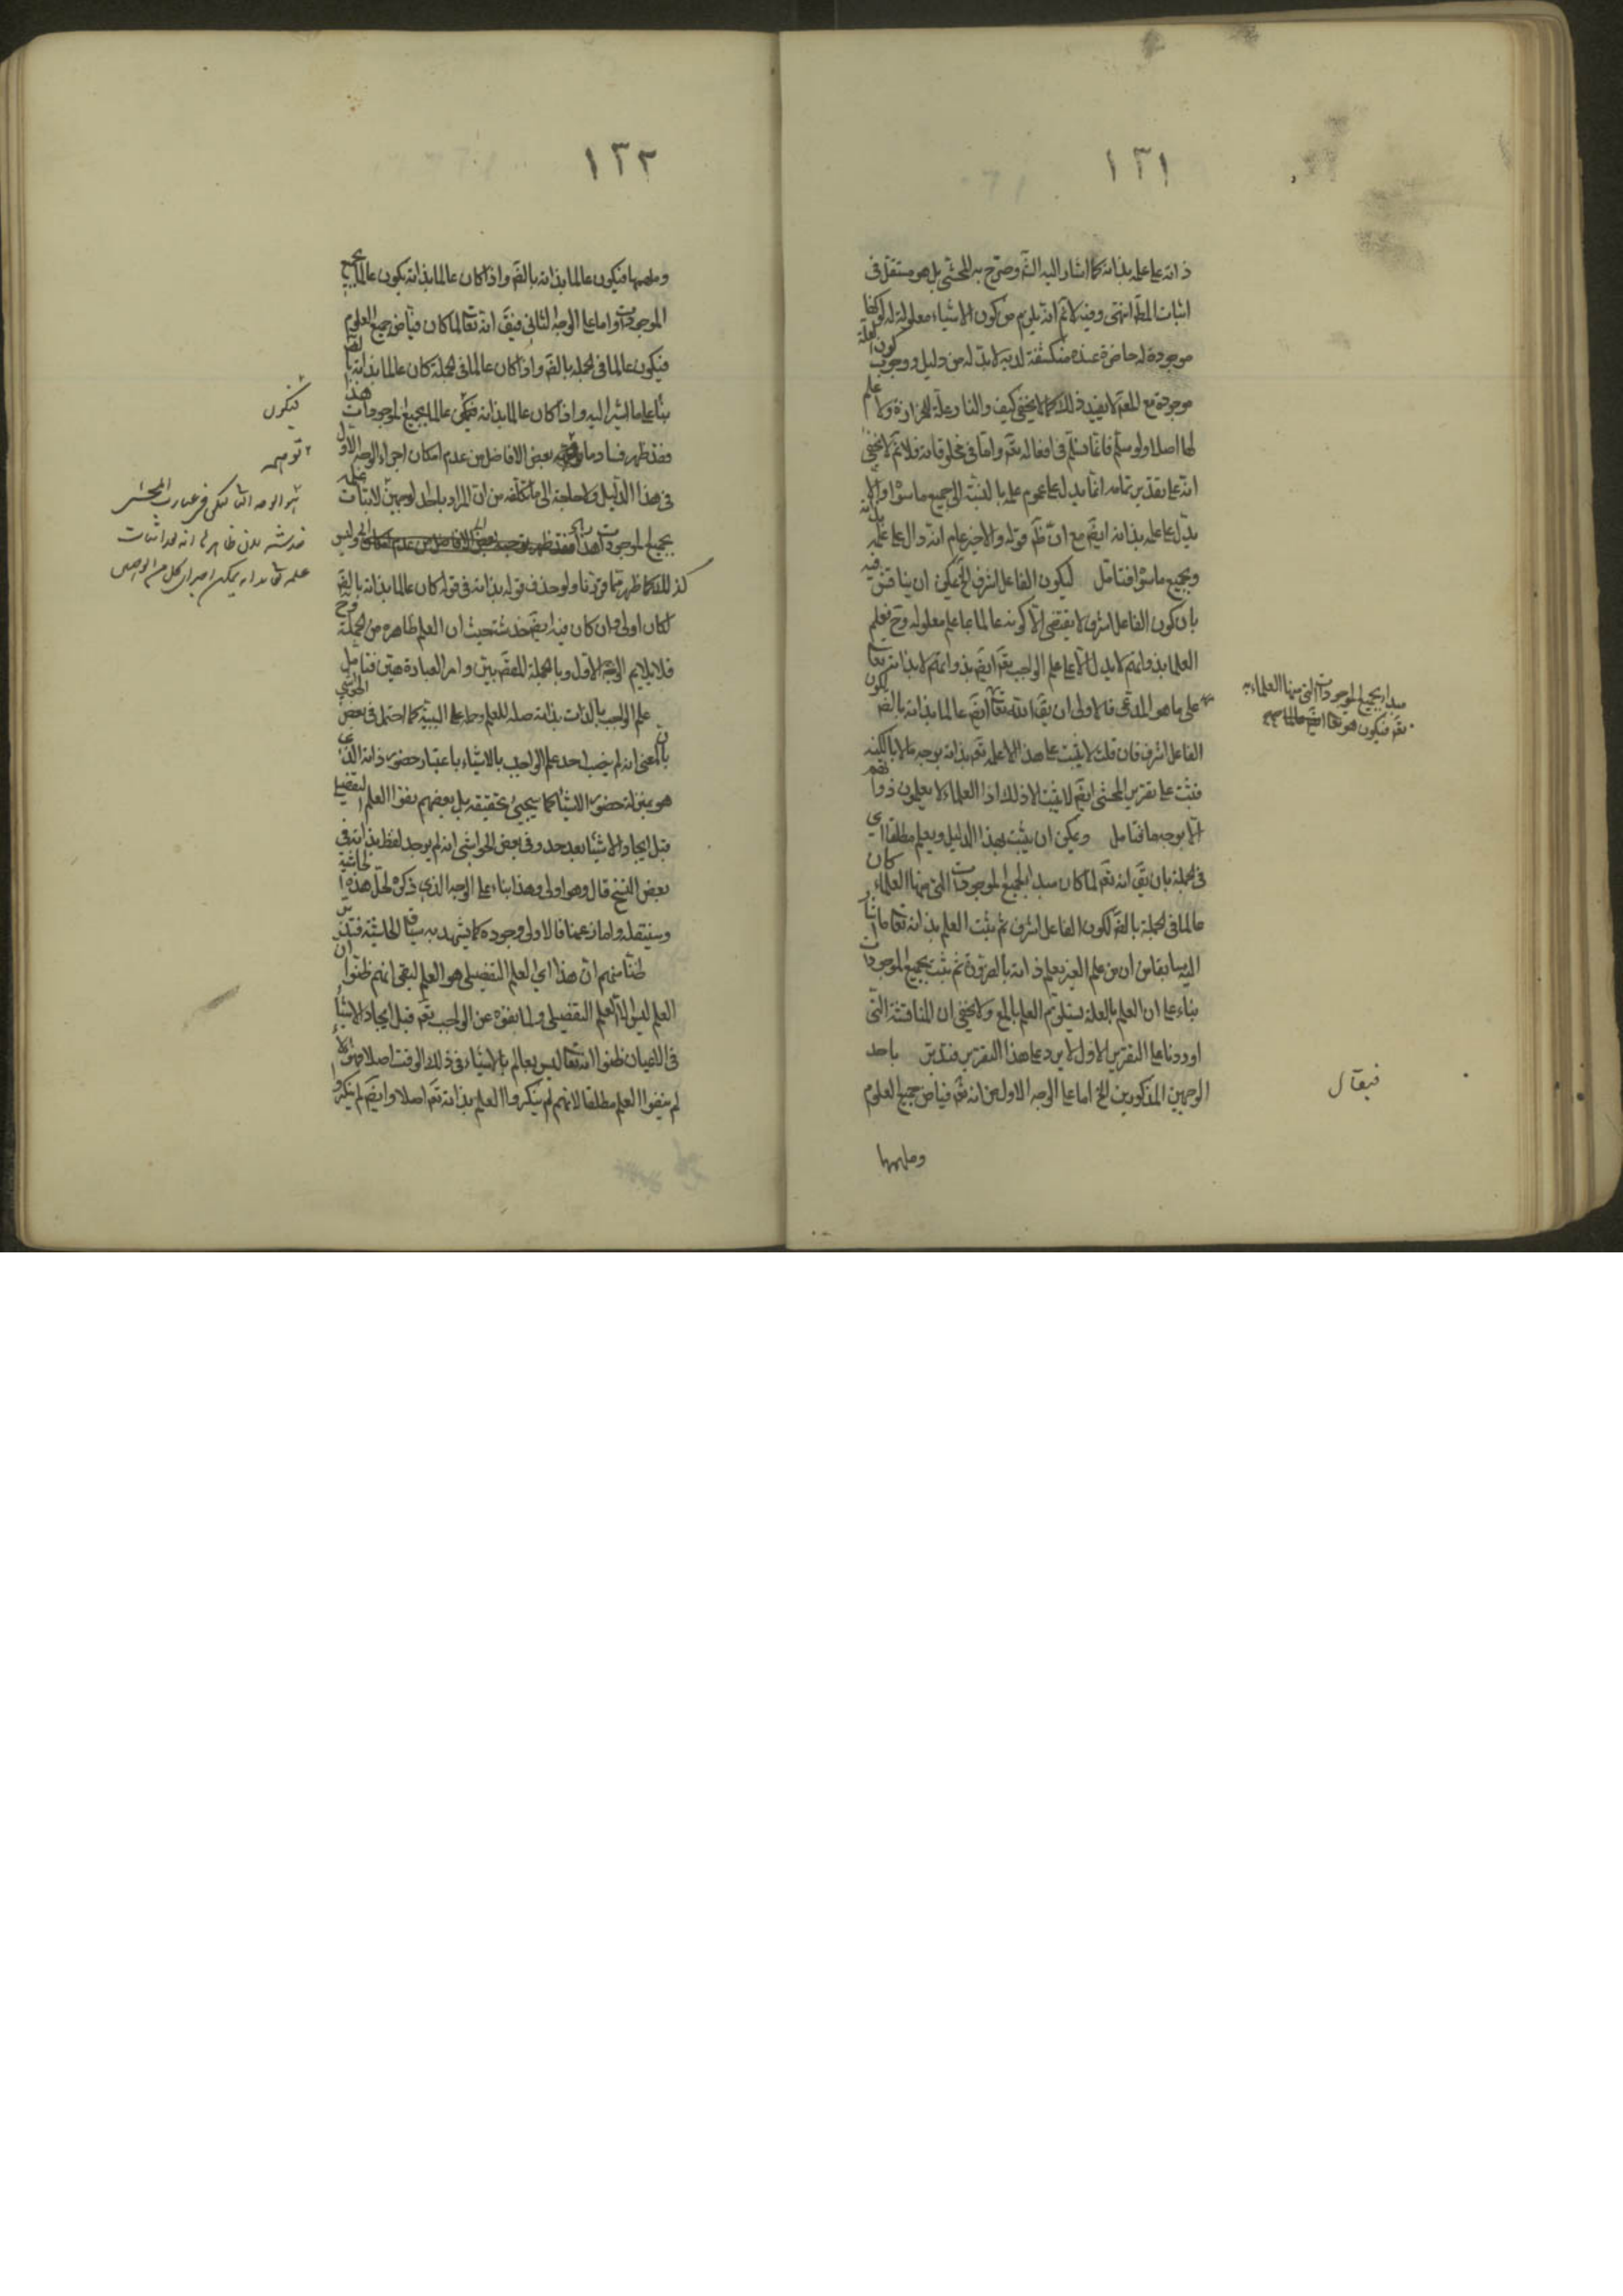 ١٣١
ذاته على علمه بذاته كما اشار اليه الشم وصرح به المحشي بل هو مستقل في
اثبات المط انتهى وفيه لانم انه يلزم من كون الاشياء معلولة له كونها
موجودة له حاضرة عنده منكشفة لديه لابد له من دليل ووجوب كون العلة
موجودة مع المعم لا يفيد ذلك كما لا يخفى كيف والنار علة للحرارة ولا علم
لها اصلا ولو سلم فانما نسلم في افعاله تعم واما في مخلوقاته فلا ثم لا يخفى
انه على تقدير تمامه انما يدل على عموم علمه بالنسبة الى جميع ما سواه ولا
يدل على علمه بذاته ايضم مع ان ظم قوله والاخير عام انه دال على علمه بذاته
وبجميع ما سواه فتامل لكون الفاعل اشرف الخ يمكن ان يناقش فيه
بان كون الفاعل اشرف لا يقتضي الا كونه عالما بما علم معلوله وح فعلم
العلماء بذواتهم لا يدل الا على علم الواجب تعم ايضم بذواتهم لا بذاته تعالى
على ما هو المدعى فالاولى ان يقم انه تعالى ايضم عالما بذاته بالضم لكون
الفاعل اشرف فان قلت لا يثبت على هذا الا علمه تعم بذاته بوجه ما لا بالكنه
قلت على تقرير المحشي ايضم لا يثبت الا ذلك اذ العلماء لا يعلمون ذواتهم
الا بوجه ما فتامل ويمكن ان يثبت بهذا الدليل ويعلم مطلقا اي
في الجملة بان يقم انه تعم لما كان مبدا لجميع الموجودات التي منها العلماء كان
عالما في الجملة بالضم لكون الفاعل اشرف ثم يثبت العلم بذاته تعالى بما اشار
اليه سابقا من ان من علم الغير يعلم ذاته بالضرورة ثم يثبت بجميع الموجودات
بناء على ان العلم بالعلة يستلزم العلم بالمع ولا يخفى ان المناقشة التي
اوردناها على التقرير الاول لا يرد على هذا التقرير فتدبر باحد
الوجهين المذكورين الخ اما على الوجه الاول من انه تعم فياض جميع العلوم
وملهمها
مبدا لجميع الموجودات التي منها العلماء
تعم فيكون هو تعالى ايضم عالما بهم
فيقال
١٣٢
وملهمها فيكون عالما بذاته بالضم واذا كان عالما بذاته يكون عالما بجميع
الموجودات واما على الوجه الثاني فيقم انه تعالى لما كان فياض جميع العلوم
فيكون عالما في الجملة بالضم واذا كان عالما في الجملة كان عالما بذاته بالضم
بناء على ما اشير اليه واذا كان عالما بذاته فيكون عالما بجميع الموجودات هذا
فقد ظهر فساد ما بعض الافاضل من عدم امكان اجراء الوجه الاول
في هذا الدليل ولا حاجة الى ما تكلفه من ان المراد باحد الوجهين لاثبات علمه
بجميع الموجودات هذا وليس
كذلك كما ظهر مما قررنا ولو حذف قوله بذاته في قوله كان عالما بذاته بالضم
لكان اولى وان كان فيه ايضم خدشة حيث ان العلم ظاهره من الجملة وح
فلا يلايم الوجه الاول وبالجملة للمقم بيّن وامر العبارة هيّن فتامل
علم الواجب بالذات بذاته صلة للعلم وحمله على السببية كما احتمل في بعض الحواشي
بالمعنى انه لم يخب احد علم الواجب بالاشياء باعتبار حضور ذاته الذي
هو بمنزلة حضور الاشياء كما سيجيئ تحقيقه بل بعضهم نفوا العلم التفصيلي
قبل ايجاد الاشياء بعيد جدا وفي بعض الحواشي انه لم يوجد لفظ بذاته في
بعض النسخ قال وهو اولى وهذا بناء على الوجه الذي ذكره لحل هذه الحاشية
وسننقله واما زعمنا فالاولى وجوده كما يشهد به سياق الحاشية فتدبر
ظنا منهم ان هذا اي العلم التفصيلي هو العلم لبقي انهم ظنوا ان
العلم ليس الا العلم التفصيلي ولما نفوه عن الواجب تعم قبل ايجاد الاشياء
في الاعيان ظنوا انه تعالى ليس بعالم بالاشياء في ذلك الوقت اصلا
لم ينفوا العلم مطلقا لانهم لم ينكروا العلم بذاته تعم اصلا وايضم لم ينكروا
فيكون
توهمه